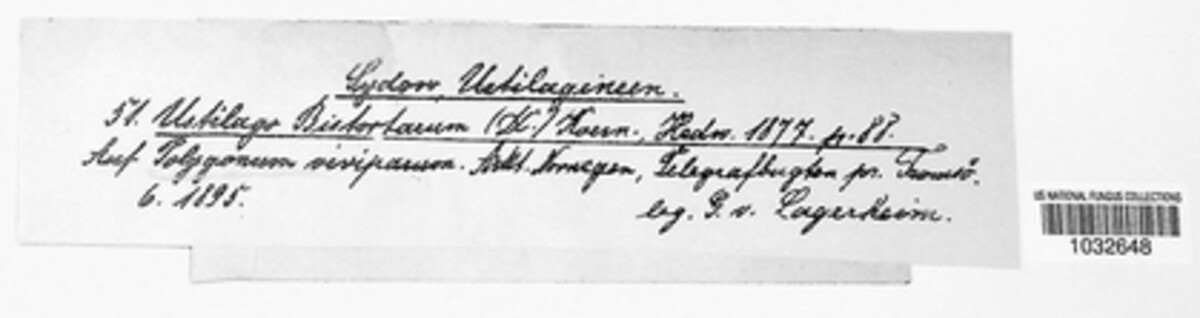 Sydow, Ustilagineen.
51. Ustilago Bistortarum (DC.) Koern., Hedw. 1877. p. 88.
Auf Polygonum viviparum. Arkt. Norwegen, Telegrafbugten pr. Tromsö.
6. 1895.
leg. G. v. Lagerheim.
US NATIONAL FUNGUS COLLECTIONS
1032648